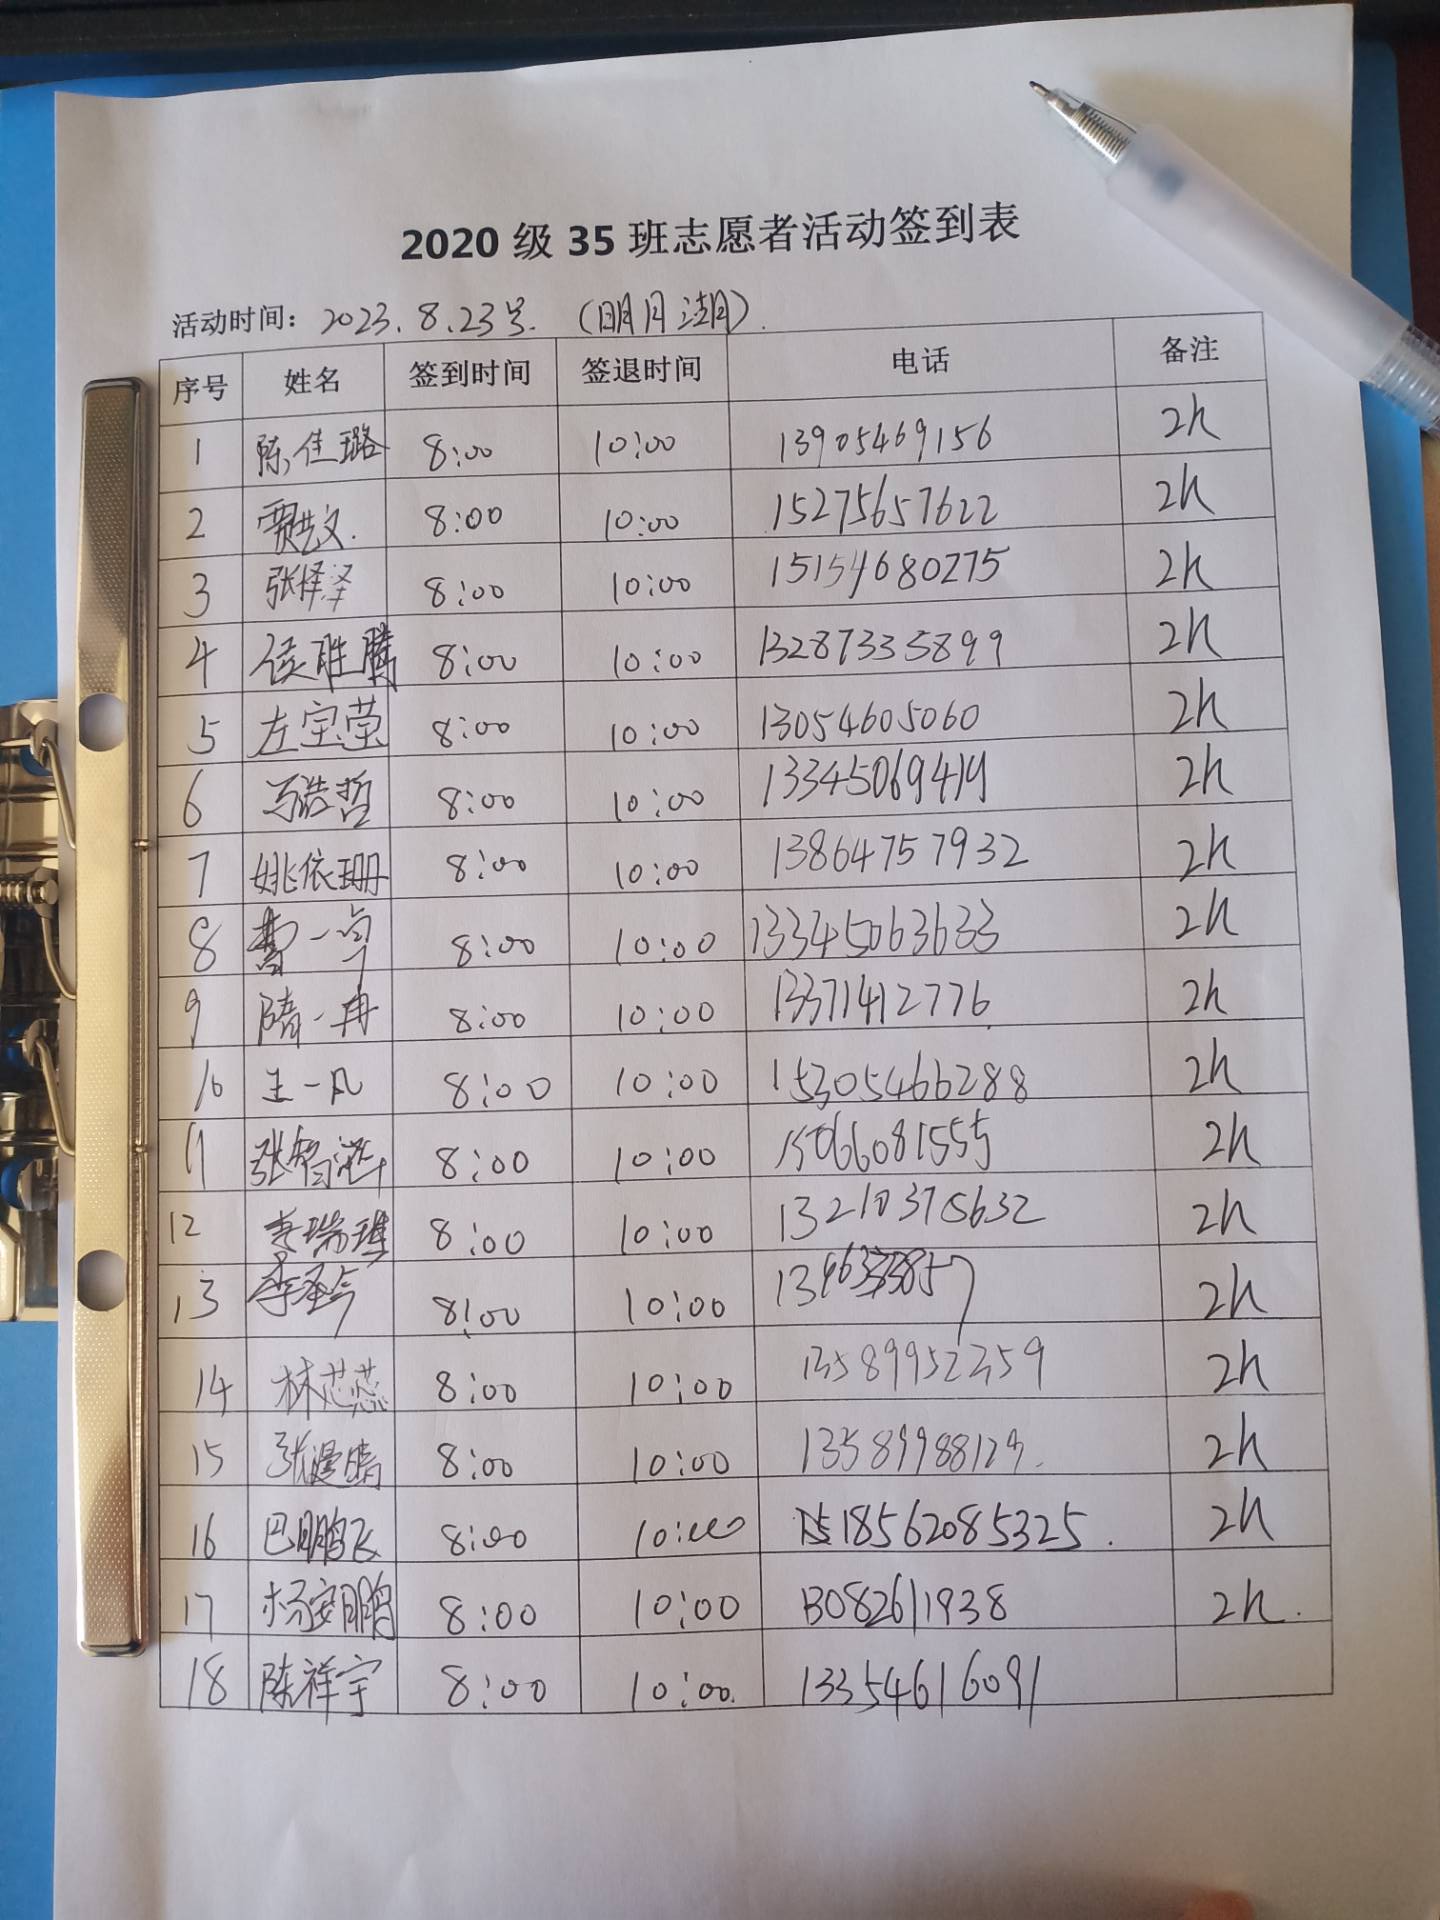 2020 级 35 班志愿者活动签到表
活动时间：2023.8.23号.（明月湖）.
序号 姓名 签到时间 签退时间 电话 备注
1 陈佳璐 8:00 10:00 13905469156 2h
2 8:00 10:00 15275657622 2h
3 张怿泽 8:00 10:00 15154680275 2h
4 侯胜腾 8:00 10:00 13287335899 2h
5 左宝莹 8:00 10:00 13054605060 2h
6 马浩哲 8:00 10:00 13345069419 2h
7 姚依珊 8:00 10:00 13864757932 2h
8 曹一卓 8:00 10:00 13345063633 2h
9 隋一冉 8:00 10:00 13371412776 2h
10 王一凡 8:00 10:00 15305466288 2h
11 张智涵 8:00 10:00 15066081555 2h
12 李瑞琪 8:00 10:00 13210375632 2h
13 8:00 10:00 2h
14 林芯蕊 8:00 10:00 13589952359 2h
15 张漫晴 8:00 10:00 13589988129. 2h
16 巴鹏飞 8:00 10:00 18562085325. 2h
17 杨安鹏 8:00 10:00 13082611938 2h.
18 陈祥宇 8:00 10:00. 13354616091